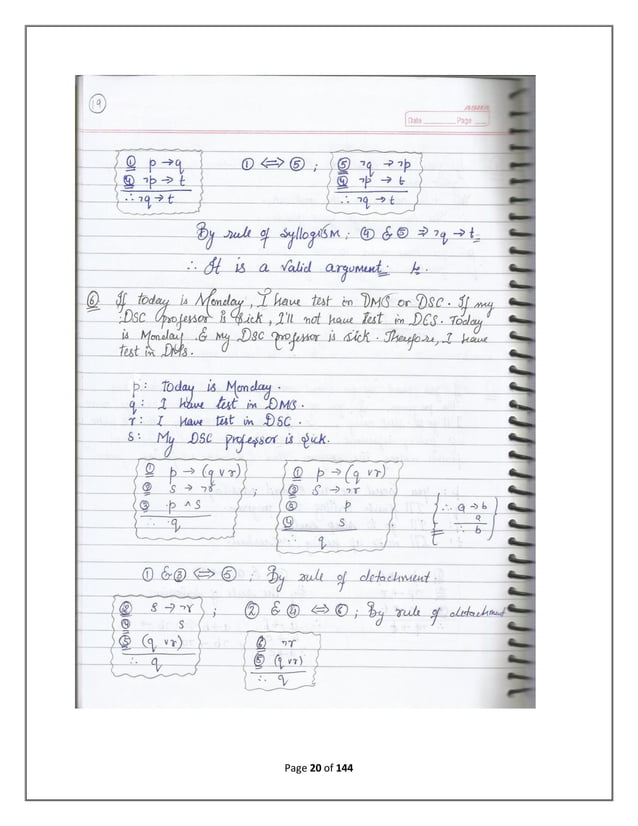 19
ASHA
Date Page
① p → q ① <=> ⑤ ; ⑤ ¬q → ¬p
④ ¬p → t ④ ¬p → t
∴ ¬q → t ∴ ¬q → t
By rule of syllogism : ④ & ⑤ => ¬q → t
∴ It is a valid argument.
⑥ If today is Monday, I have test in DMS or DSC. If my
DSC professor is sick, I'll not have test in DCS. Today
is Monday & my DSC professor is sick. Therefore, I have
test in DMS.
p : Today is Monday.
q : I have test in DMS.
r : I have test in DSC.
s : My DSC professor is sick.
① p → (q ∨ r) ; ① p → (q ∨ r)
② s → ¬r ② s → ¬r
③ p ∧ s ③ p
∴ q ④ s
∴ q
∴ a → b
a
∴ b
① & ③ <=> ⑤ ; By rule of detachment.
② s → ¬r ; ② & ④ <=> ⑥ ; By rule of detachment
④ s
⑤ (q ∨ r)
∴ q
⑥ ¬r
⑤ (q ∨ r)
∴ q
Page 20 of 144